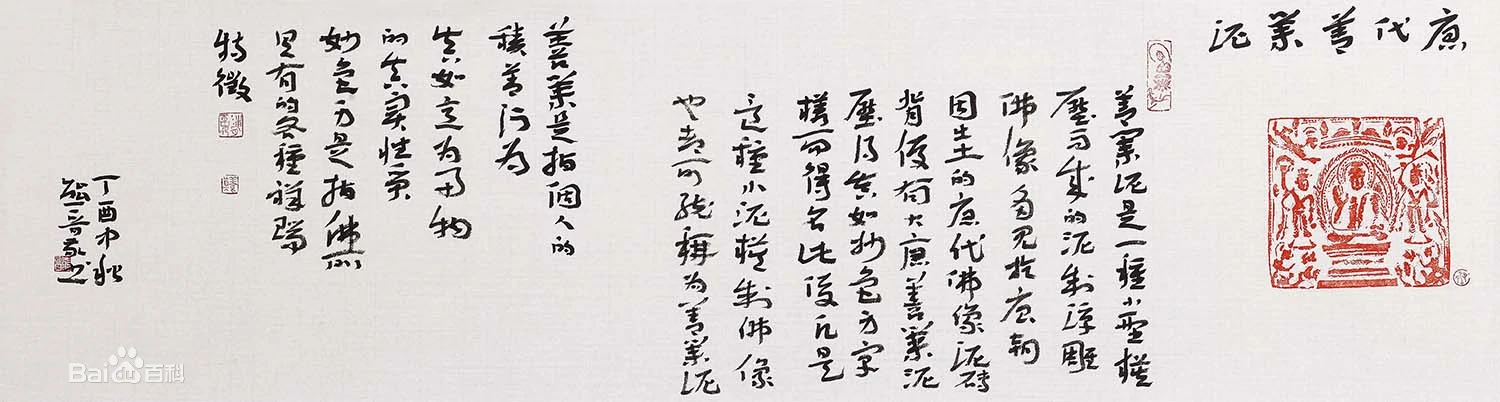 唐代善業泥
善業泥是一種小型模
壓而成的泥制浮雕
佛像多見於唐朝
因出土的唐代佛像泥磚
背後有大唐善業泥
壓得真如妙色身字
樣而得名此後凡是
這種小泥模制佛像
也可統稱为善業泥
善業是指個人的
積善行为
真如意为事物
的真實性質
妙色身是指佛所
具有的各種祥瑞
特徵
丁酉中秋
敬书
Bai百科